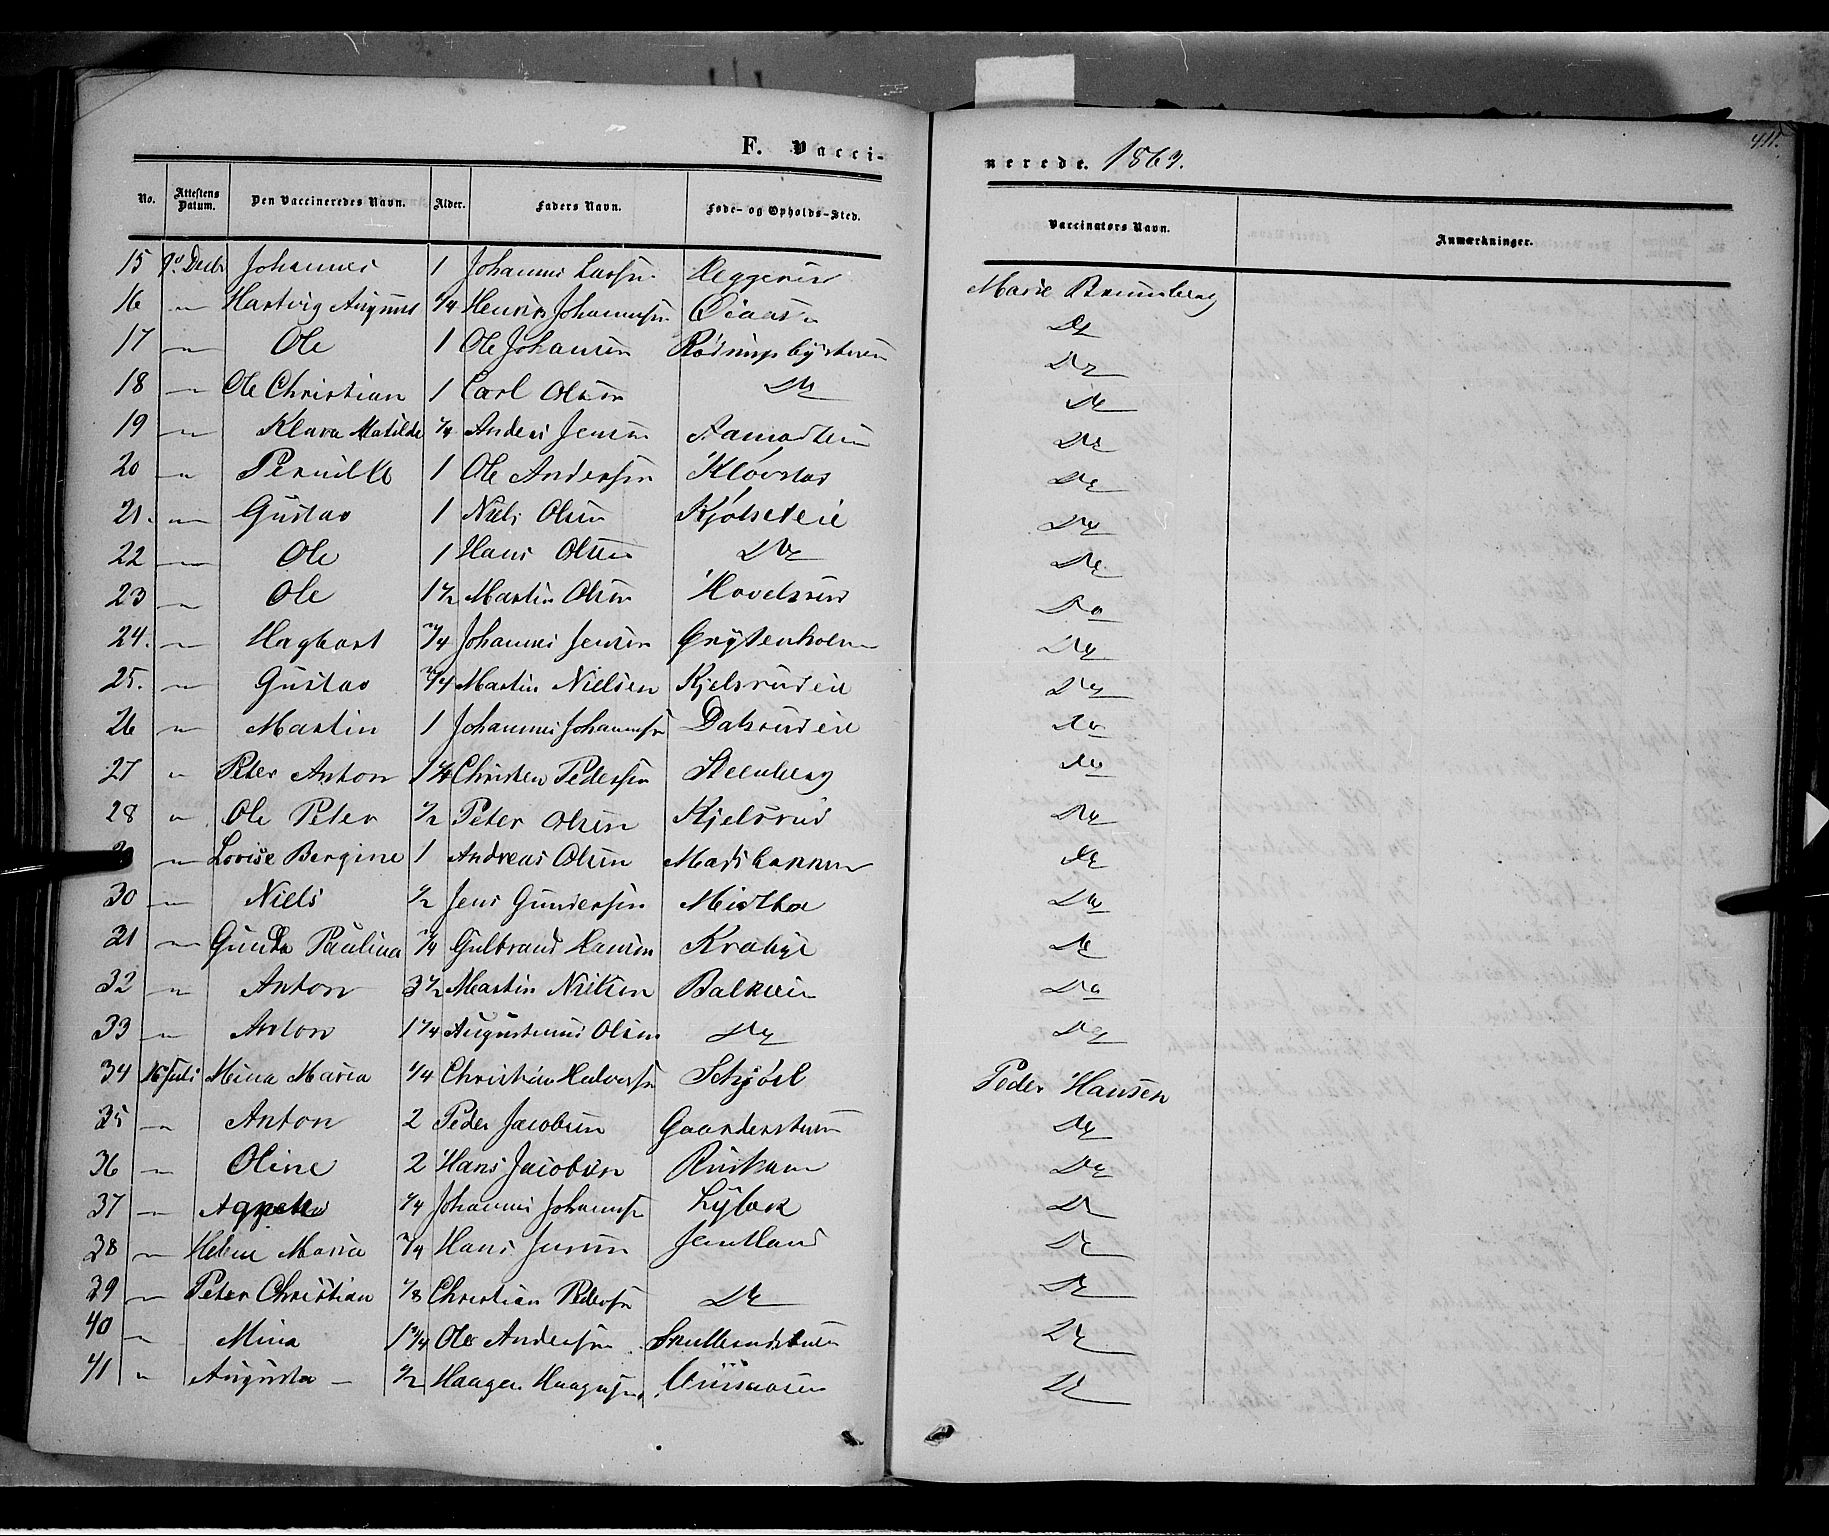 F. Vacci-
nerede. 1863.
411.
No. Attestens Datum. Den Vaccineredes Navn. Alder. Faders Navn. Føde- og Opholds-Sted. Vaccinators Navn. Anmærkninger.
15 Decbr Johannes 1 Johannes Larsen Heggerud Marie Brunsberg
16 " Hartvig August 1/4 Henrik Johannesen Do
17 " Ole 1 Ole Johansen Do
18 " Ole Christian 1 Carl Olsen Do Do
19 " Klara Matilde 1/4 Anders Jensen Do
20 " Pernille 1 Ole Andersen Kløvstad Do
21. " Gustav 1 Niels Olsen Kjølseteie Do
22 " Ole 1 Hans Olsen Do Do
23 " Ole 1 1/2 Martin Olsen Hovelsrud Do
24. " Hagbart 3/4 Johannes Jensen Do
25. " Gustav 3/4 Martin Nielsen Kjelsrudeie Do
26 " Martin 1 Johannes Johannesen Dalsrudeie Do
27 " Peter Anton 1 Christen Pedersen Steenberg Do
28 " Ole Peter 1/2 Peter Olsen Kjelsrud Do
" Lovise Bergine 1 Andreas Olsen Do
30 " Niels 1/2 Jens Gundersen Do
31 " Paulina 1/4 Gulbrand Hansen Krabye Do
32 " Anton 3 1/2 Martin Nielsen Balkeeie Do
33 " Anton 1 1/4 Augustinus Olsen Do Do
34 16 Juli Mina Maria 1/4 Christian Halvorsen Schjøll Peder Hansen
35 " Anton 2 Peder Jacobsen Gaarderstuen Do
36 " Oline 2 Hans Jacobsen Do
37 " Agnethe 1/4 Johannes Johannesen Lybæk Do
38 " Helene Maria 3/4 Hans Jensen Do
39 " Peter Christian 1/8 Christian Pedersen Do Do
40 " Mina 1 3/4 Ole Andersen Do
41 " Augusta 1/2 Haagen Haagensen Do